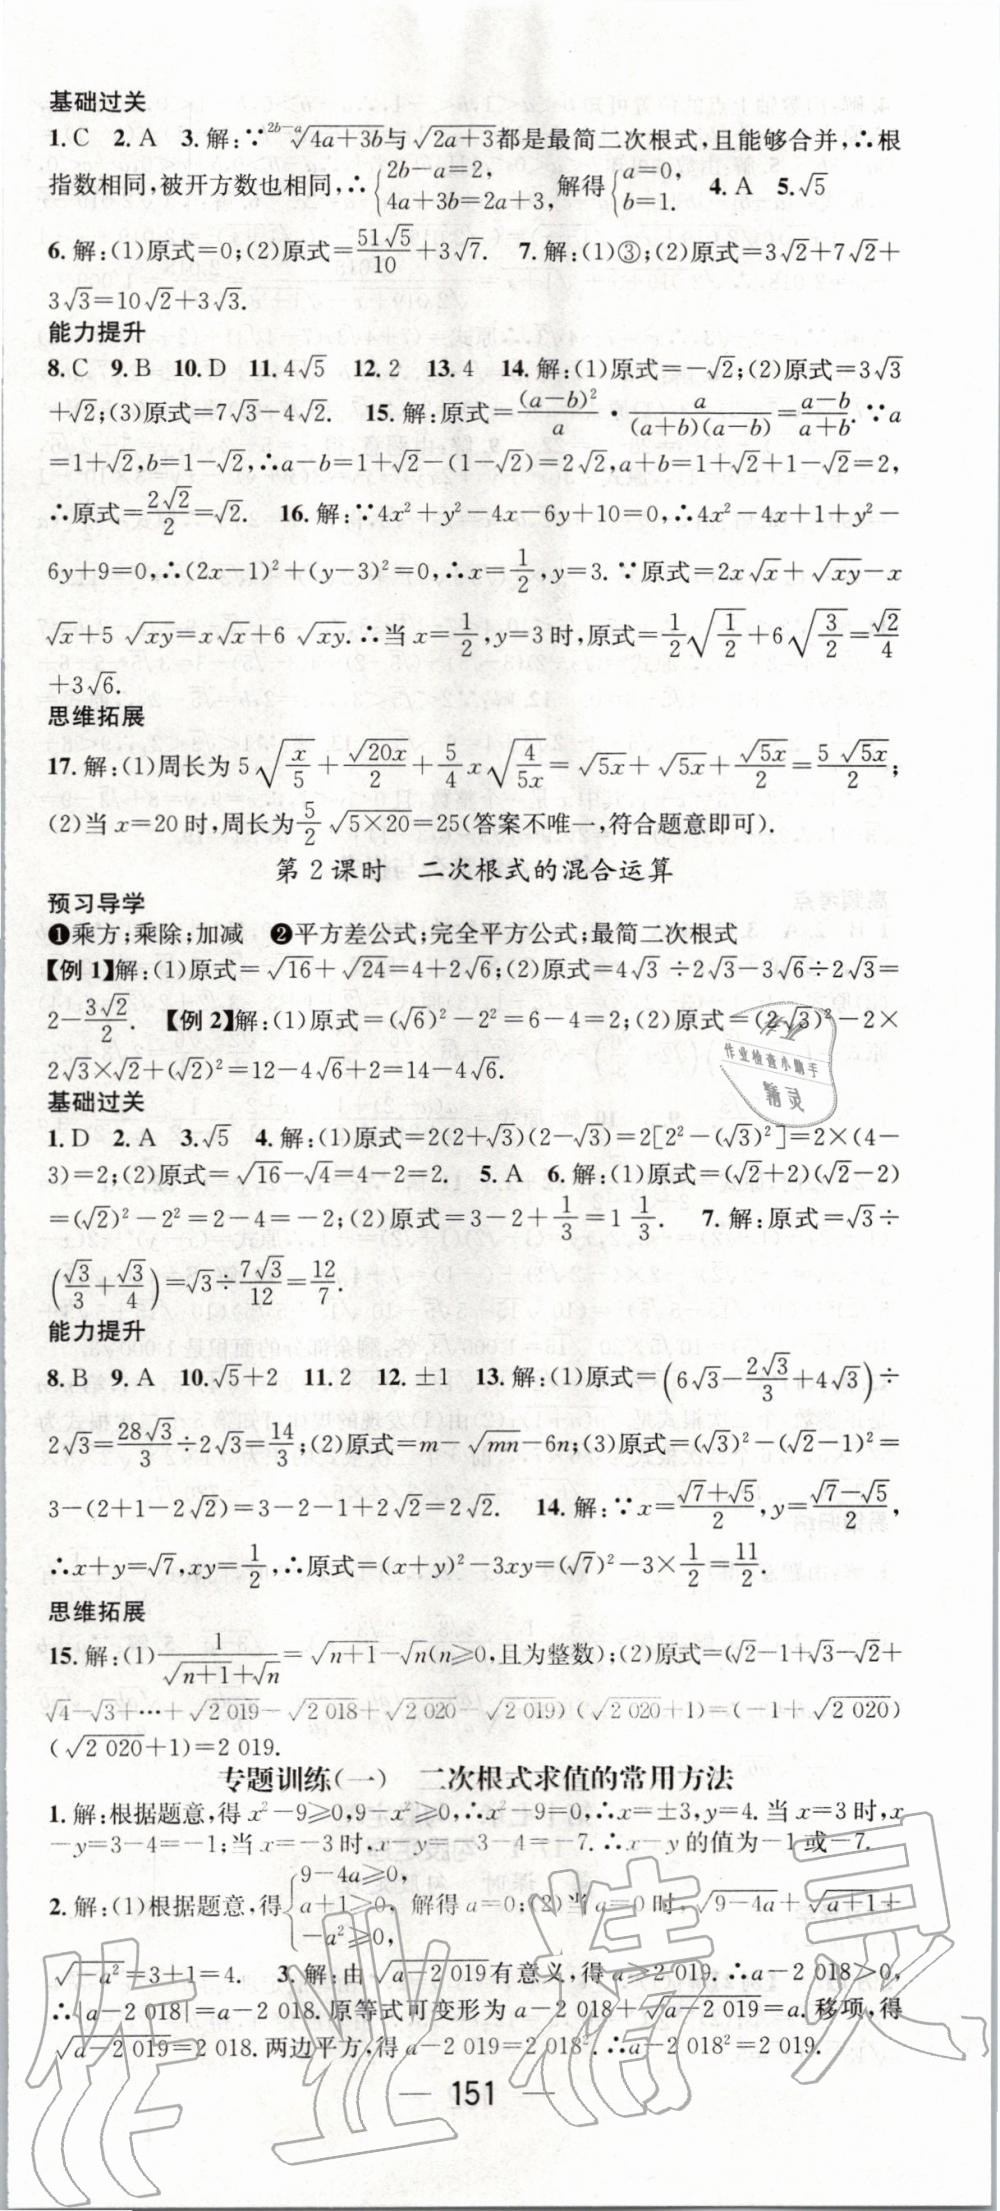 基础过关
1.C 2.A 3.解:∵$\sqrt[2b-a]{4a+3b}$与$\sqrt{2a+3}$都是最简二次根式,且能够合并,∴根
指数相同,被开方数也相同,∴$\begin{cases}2b-a=2,\\4a+3b=2a+3,\end{cases}$解得$\begin{cases}a=0,\\b=1.\end{cases}$ 4.A 5.$\sqrt{5}$
6.解:(1)原式=0;(2)原式=$\frac{51\sqrt{5}}{10}$+3$\sqrt{7}$. 7.解:(1)③;(2)原式=3$\sqrt{2}$+7$\sqrt{2}$+
3$\sqrt{3}$=10$\sqrt{2}$+3$\sqrt{3}$.
能力提升
8.C 9.B 10.D 11.4$\sqrt{5}$ 12.2 13.4 14.解:(1)原式=-$\sqrt{2}$;(2)原式=3$\sqrt{3}$
+$\sqrt{2}$;(3)原式=7$\sqrt{3}$-4$\sqrt{2}$. 15.解:原式=$\frac{(a-b)^2}{a}$·$\frac{a}{(a+b)(a-b)}$=$\frac{a-b}{a+b}$.∵a
=1+$\sqrt{2}$,b=1-$\sqrt{2}$,∴a-b=1+$\sqrt{2}$-(1-$\sqrt{2}$)=2$\sqrt{2}$,a+b=1+$\sqrt{2}$+1-$\sqrt{2}$=2,
∴原式=$\frac{2\sqrt{2}}{2}$=$\sqrt{2}$. 16.解:∵4x²+y²-4x-6y+10=0,∴4x²-4x+1+y²-
6y+9=0,∴(2x-1)²+(y-3)²=0,∴x=$\frac{1}{2}$,y=3.∵原式=2x$\sqrt{x}$+$\sqrt{xy}$-x
$\sqrt{x}$+5$\sqrt{xy}$=x$\sqrt{x}$+6$\sqrt{xy}$.∴当x=$\frac{1}{2}$,y=3时,原式=$\frac{1}{2}\sqrt{\frac{1}{2}}$+6$\sqrt{\frac{3}{2}}$=$\frac{\sqrt{2}}{4}$
+3$\sqrt{6}$.
思维拓展
17.解:(1)周长为5$\sqrt{\frac{x}{5}}$+$\frac{\sqrt{20x}}{2}$+$\frac{5}{4}$x$\sqrt{\frac{4}{5x}}$=$\sqrt{5x}$+$\sqrt{5x}$+$\frac{\sqrt{5x}}{2}$=$\frac{5\sqrt{5x}}{2}$;
(2)当x=20时,周长为$\frac{5}{2}\sqrt{5×20}$=25(答案不唯一,符合题意即可).
第2课时 二次根式的混合运算
预习导学
❶乘方;乘除;加减 ❷平方差公式;完全平方公式;最简二次根式
【例1】解:(1)原式=$\sqrt{16}$+$\sqrt{24}$=4+2$\sqrt{6}$;(2)原式=4$\sqrt{3}$÷2$\sqrt{3}$-3$\sqrt{6}$÷2$\sqrt{3}$=
2-$\frac{3\sqrt{2}}{2}$. 【例2】解:(1)原式=($\sqrt{6}$)²-2²=6-4=2;(2)原式=(2$\sqrt{3}$)²-2×
2$\sqrt{3}$×$\sqrt{2}$+($\sqrt{2}$)²=12-4$\sqrt{6}$+2=14-4$\sqrt{6}$.
作业检查小助手
精灵
基础过关
1.D 2.A 3.$\sqrt{5}$ 4.解:(1)原式=2(2+$\sqrt{3}$)(2-$\sqrt{3}$)=2[2²-($\sqrt{3}$)²]=2×(4-
3)=2;(2)原式=$\sqrt{16}$-$\sqrt{4}$=4-2=2. 5.A 6.解:(1)原式=($\sqrt{2}$+2)($\sqrt{2}$-2)
=($\sqrt{2}$)²-2²=2-4=-2;(2)原式=3-2+$\frac{1}{3}$=1$\frac{1}{3}$. 7.解:原式=$\sqrt{3}$÷
$\left(\frac{\sqrt{3}}{3}+\frac{\sqrt{3}}{4}\right)$=$\sqrt{3}$÷$\frac{7\sqrt{3}}{12}$=$\frac{12}{7}$.
能力提升
8.B 9.A 10.$\sqrt{5}$+2 11.2 12.±1 13.解:(1)原式=$\left(6\sqrt{3}-\frac{2\sqrt{3}}{3}+4\sqrt{3}\right)$÷
2$\sqrt{3}$=$\frac{28\sqrt{3}}{3}$÷2$\sqrt{3}$=$\frac{14}{3}$;(2)原式=m-$\sqrt{mn}$-6n;(3)原式=($\sqrt{3}$)²-($\sqrt{2}$-1)²=
3-(2+1-2$\sqrt{2}$)=3-2-1+2$\sqrt{2}$=2$\sqrt{2}$. 14.解:∵x=$\frac{\sqrt{7}+\sqrt{5}}{2}$,y=$\frac{\sqrt{7}-\sqrt{5}}{2}$,
∴x+y=$\sqrt{7}$,xy=$\frac{1}{2}$,∴原式=(x+y)²-3xy=($\sqrt{7}$)²-3×$\frac{1}{2}$=$\frac{11}{2}$.
思维拓展
15.解:(1)$\frac{1}{\sqrt{n+1}+\sqrt{n}}$=$\sqrt{n+1}$-$\sqrt{n}$(n≥0,且为整数);(2)原式=($\sqrt{2}$-1+$\sqrt{3}$-$\sqrt{2}$+
$\sqrt{4}$-$\sqrt{3}$+…+$\sqrt{2 019}$-$\sqrt{2 018}$+$\sqrt{2 020}$-$\sqrt{2 019}$)($\sqrt{2 020}$+1)=(-1+$\sqrt{2 020}$)
($\sqrt{2 020}$+1)=2 019.
专题训练(一) 二次根式求值的常用方法
1.解:根据题意,得x²-9≥0,9-x²≥0,∴x²-9=0,∴x=±3,y=4.当x=3时,x
-y=3-4=-1;当x=-3时,x-y=-3-4=-7.∴x-y的值为-1或-7.
2.解:(1)根据题意,得$\begin{cases}9-4a≥0,\\a+1≥0,\\-a²≥0,\end{cases}$解得a=0;(2)当a=0时,$\sqrt{9-4a}$+$\sqrt{a+1}$+
$\sqrt{-a²}$=3+1=4. 3.解:由$\sqrt{a-2 019}$有意义,得a≥2 019.∴a-2 018>0,
∴|a-2 018|=a-2 018.原等式可变形为a-2 018+$\sqrt{a-2 019}$=a.移项,得
$\sqrt{a-2 019}$=2 018.两边平方,得a-2 019=2 018².∴a-2 018²=2 019.
作业精灵
— 151 —